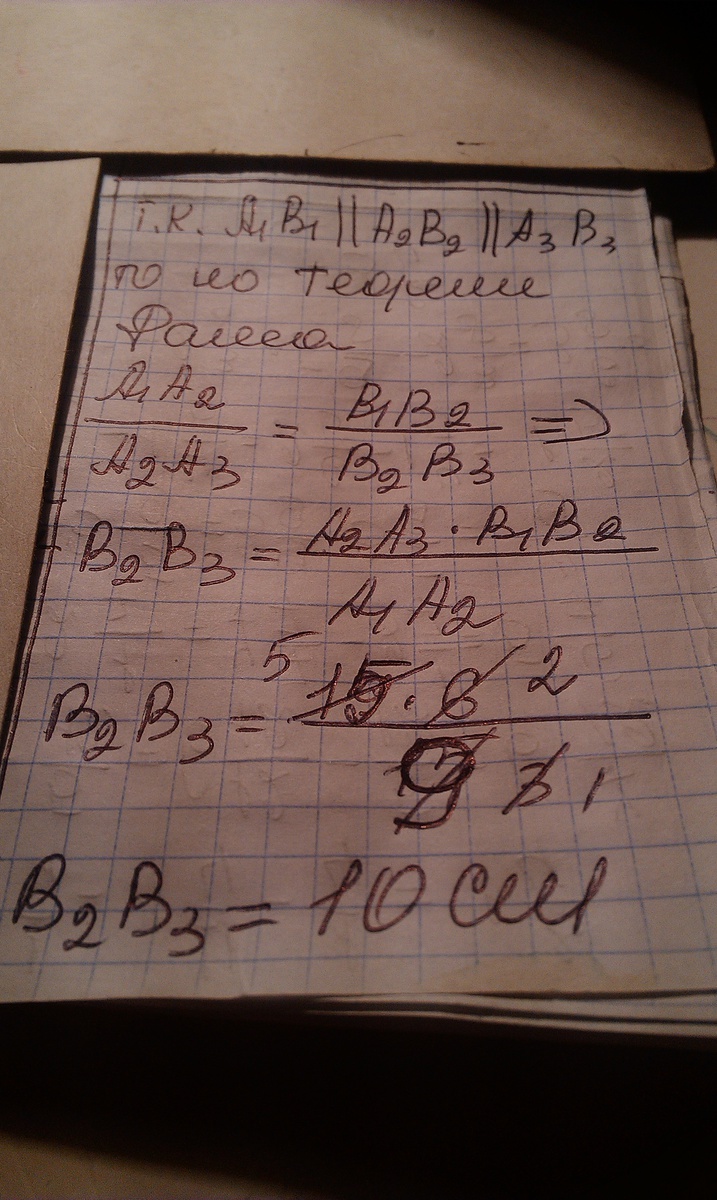 Т.К. A₁B₁ || A₂B₂ || A₃B₃
то по теореме
Фалеса
A₁A₂ / A₂A₃ = B₁B₂ / B₂B₃ =>
B₂B₃ = A₂A₃ · B₁B₂ / A₁A₂
B₂B₃ = 5 15 · 6 2 / 9 3 1
B₂B₃ = 10 см